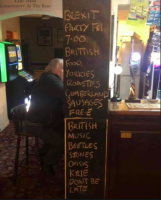 BREXIT
PARTY FRI
7-00
BRITTISH
FOOD
ROASTIES
CUMBERLAND
SAUSAGES
FREE
BRITISH
MUSIC
BEETLES
STONES
OASIS
KYLIE
DON'T BE
LATE